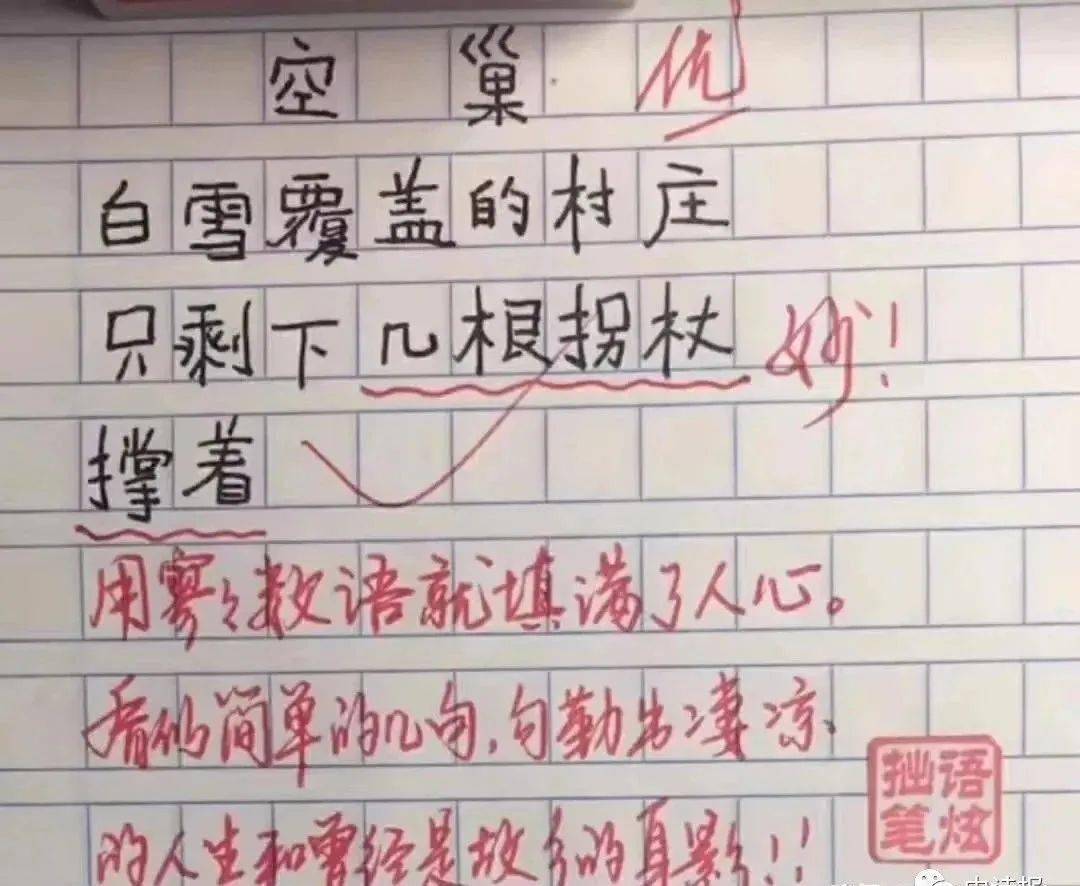 空巢 优
白雪覆盖的村庄
只剩下几根拐杖 妙!
撑着
用寥寥数语就填满了人心。
看似简单的几句,勾勒出凄凉
的人生和曾经是故乡的真影!!
拙语
笔炫